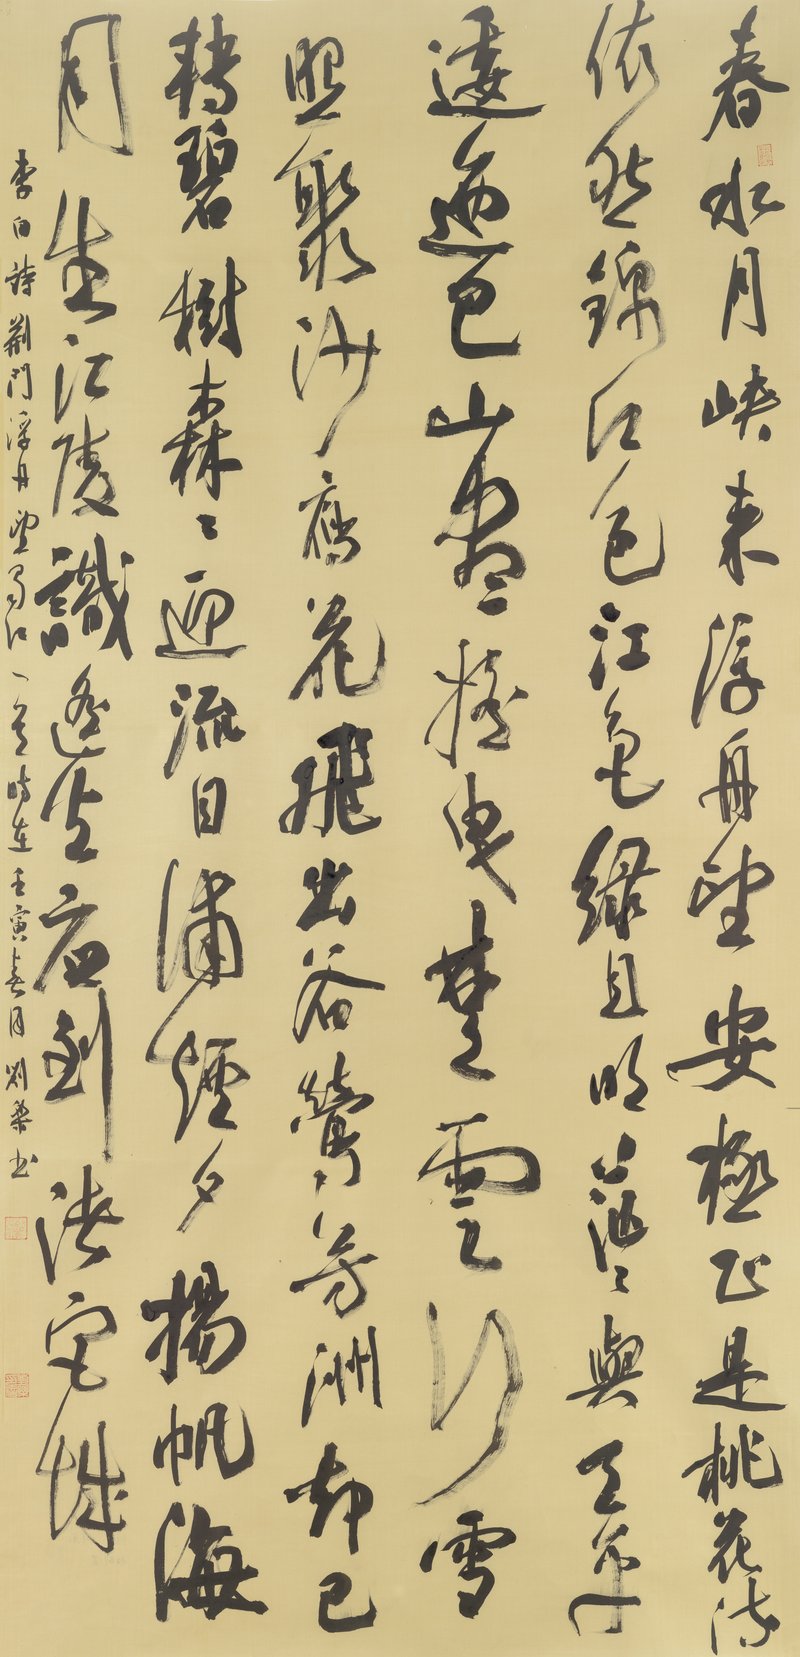 春水月峽來浮舟望安極正是桃花流
依然錦江色江色綠且明茫〻與天平
逶迤巴山盡搖曳楚雲行雪
照聚沙雁花飛出谷鶯芳洲卻已
轉碧樹森〻迎流目浦煙夕揚帆海
月生江陵識遙火應到渚宮城
李白詩荊門浮舟望蜀江一首時在壬寅春月劉書